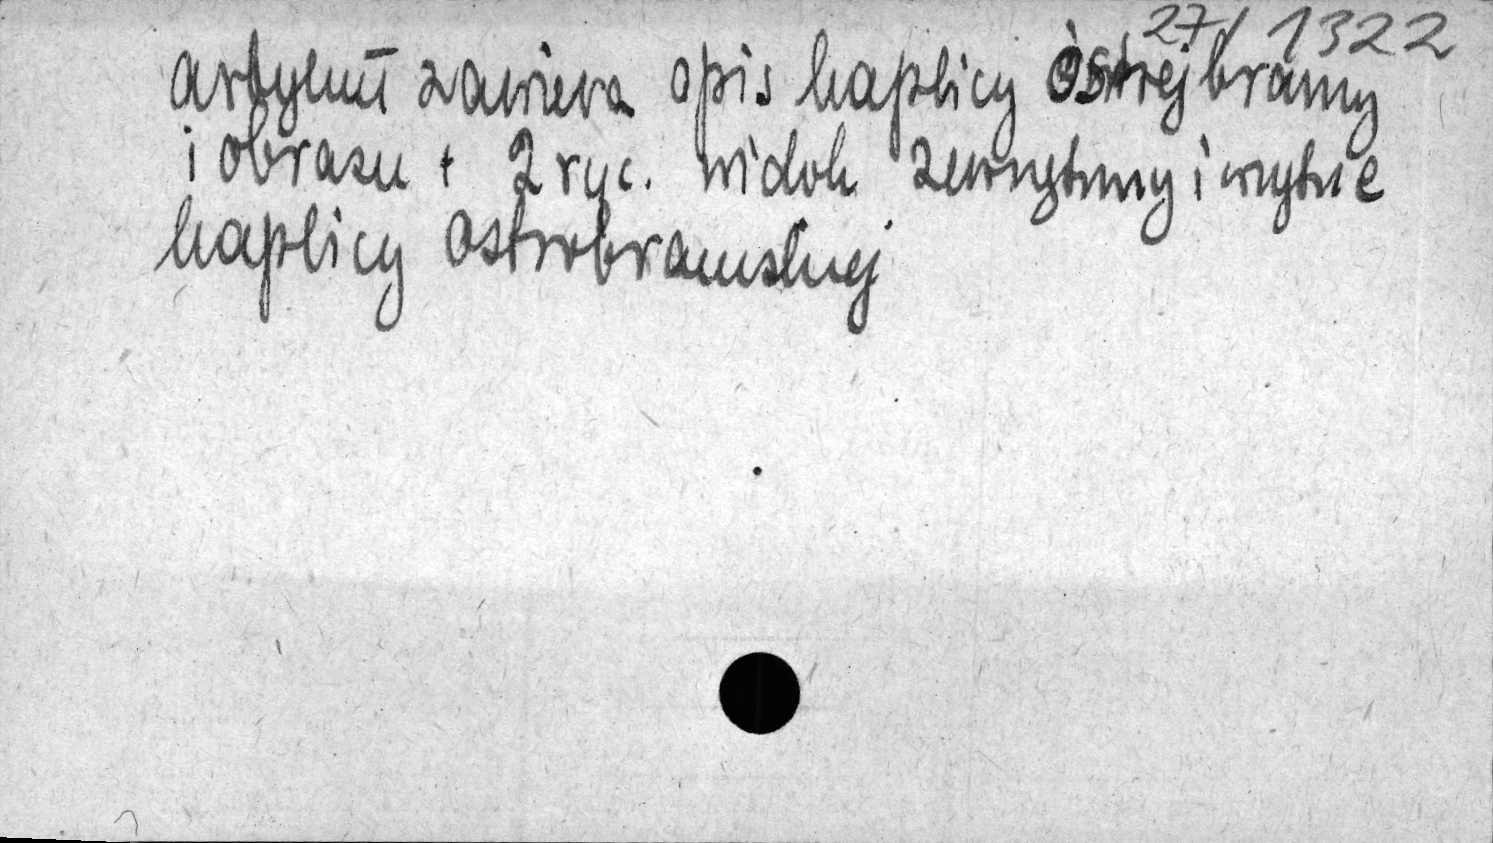 27/1322
artykuł zawiera opis kaplicy Ostrej bramy
i obrazu + 2 ryc. widok zewnętrzny i wnętrze
kaplicy ostrobramskiej